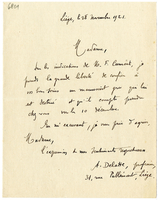 Liège, le 28 novembre 1921
Madame,
Sur les indications de M. F. Cumont, je
prends la grande liberté de confier à
vos bons soins un monument que lui
est destiné et qu'il compte prendre
chez vous vers le 10 décembre.
En m'excusant, je vous prie d'agréer,
Madame,
l'expression de mes sentiments respectueux
A. Delatte, professeur,
rue Liège